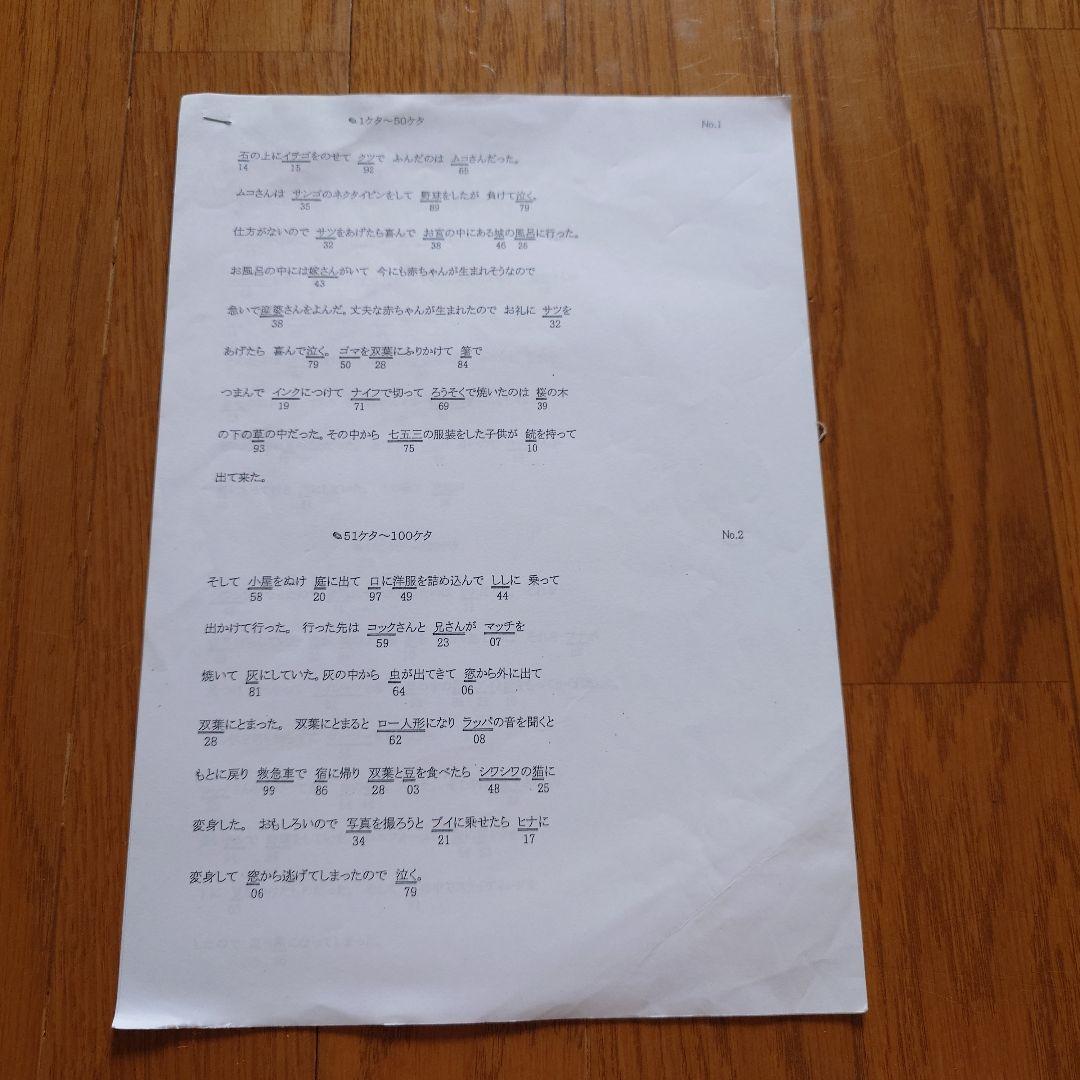 ✎1ケタ～50ケタ No.1
石の上にイチゴをのせて クツで ふんだのは ムコさんだった。
14 15 92 65
ムコさんは サンゴのネクタイピンをして 野球をしたが 負けて泣く。
35 89 79
仕方がないので サツをあげたら喜んで お宮の中にある城の風呂に行った。
32 38 46 26
お風呂の中には嫁さんがいて 今にも赤ちゃんが生まれそうなので
43
急いで産婆さんをよんだ。丈夫な赤ちゃんが生まれたので お礼に サツを
38 32
あげたら 喜んで泣く。 ゴマを双葉にふりかけて 箸で
79 50 28 84
つまんで インクにつけて ナイフで切って ろうそくで焼いたのは 桜の木
19 71 69 39
の下の草の中だった。その中から 七五三の服装をした子供が 銃を持って
93 75 10
出て来た。
✎51ケタ～100ケタ No.2
そして 小屋をぬけ 庭に出て 口に洋服を詰め込んで ししに 乗って
58 20 97 49 44
出かけて行った。 行った先は コックさんと 兄さんが マッチを
59 23 07
焼いて 灰にしていた。灰の中から 虫が出てきて 窓から外に出て
81 64 06
双葉にとまった。 双葉にとまると ロー人形になり ラッパの音を聞くと
28 62 08
もとに戻り 救急車で 宿に帰り 双葉と豆を食べたら シワシワの猫に
99 86 28 03 48 25
変身した。 おもしろいので 写真を撮ろうと ブイに乗せたら ヒナに
34 21 17
変身して 窓から逃げてしまったので 泣く。
06 79